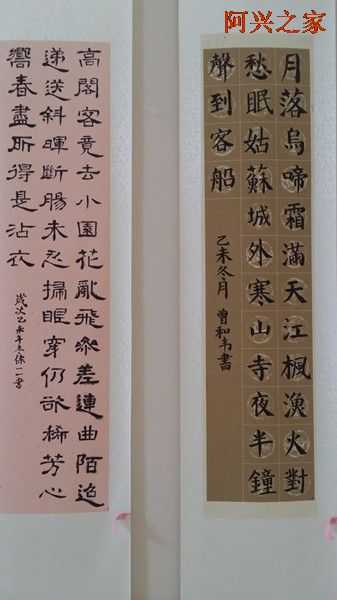 阿兴之家
月落烏啼霜滿天江楓漁火對
愁眠姑蘇城外寒山寺夜半鐘
聲到客船
乙未冬月 曾和書
高閣客竟去小園花亂飛參差連曲陌迢
遞送斜暉斷腸未忍掃眼穿仍欲稀芳心
嚮春盡所得是沾衣
歲次乙未年書